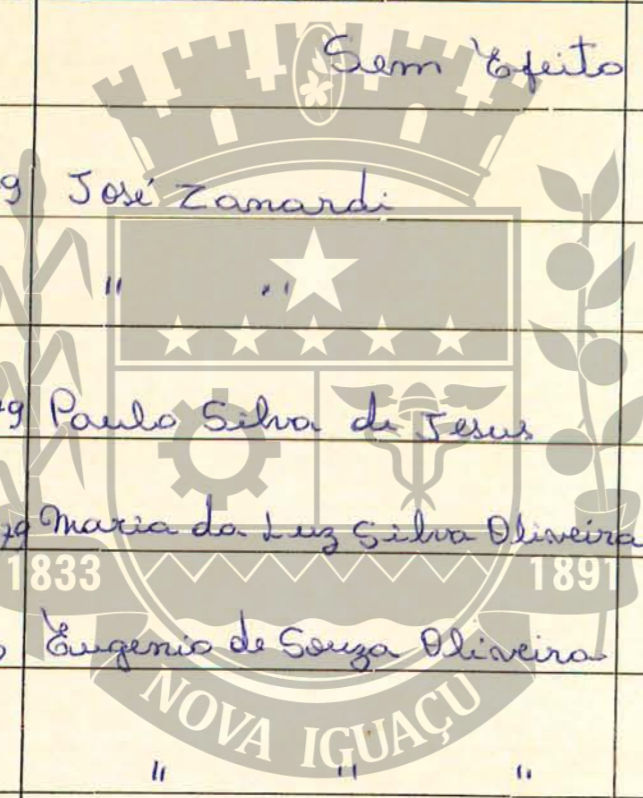 Sem Efeito
9 José Zanardi
" "
79 Paulo Silva de Jesus
79 Maria da Luz Silva Oliveira
1833 1891
Eugenio de Souza Oliveira
NOVA IGUAÇU
" " "